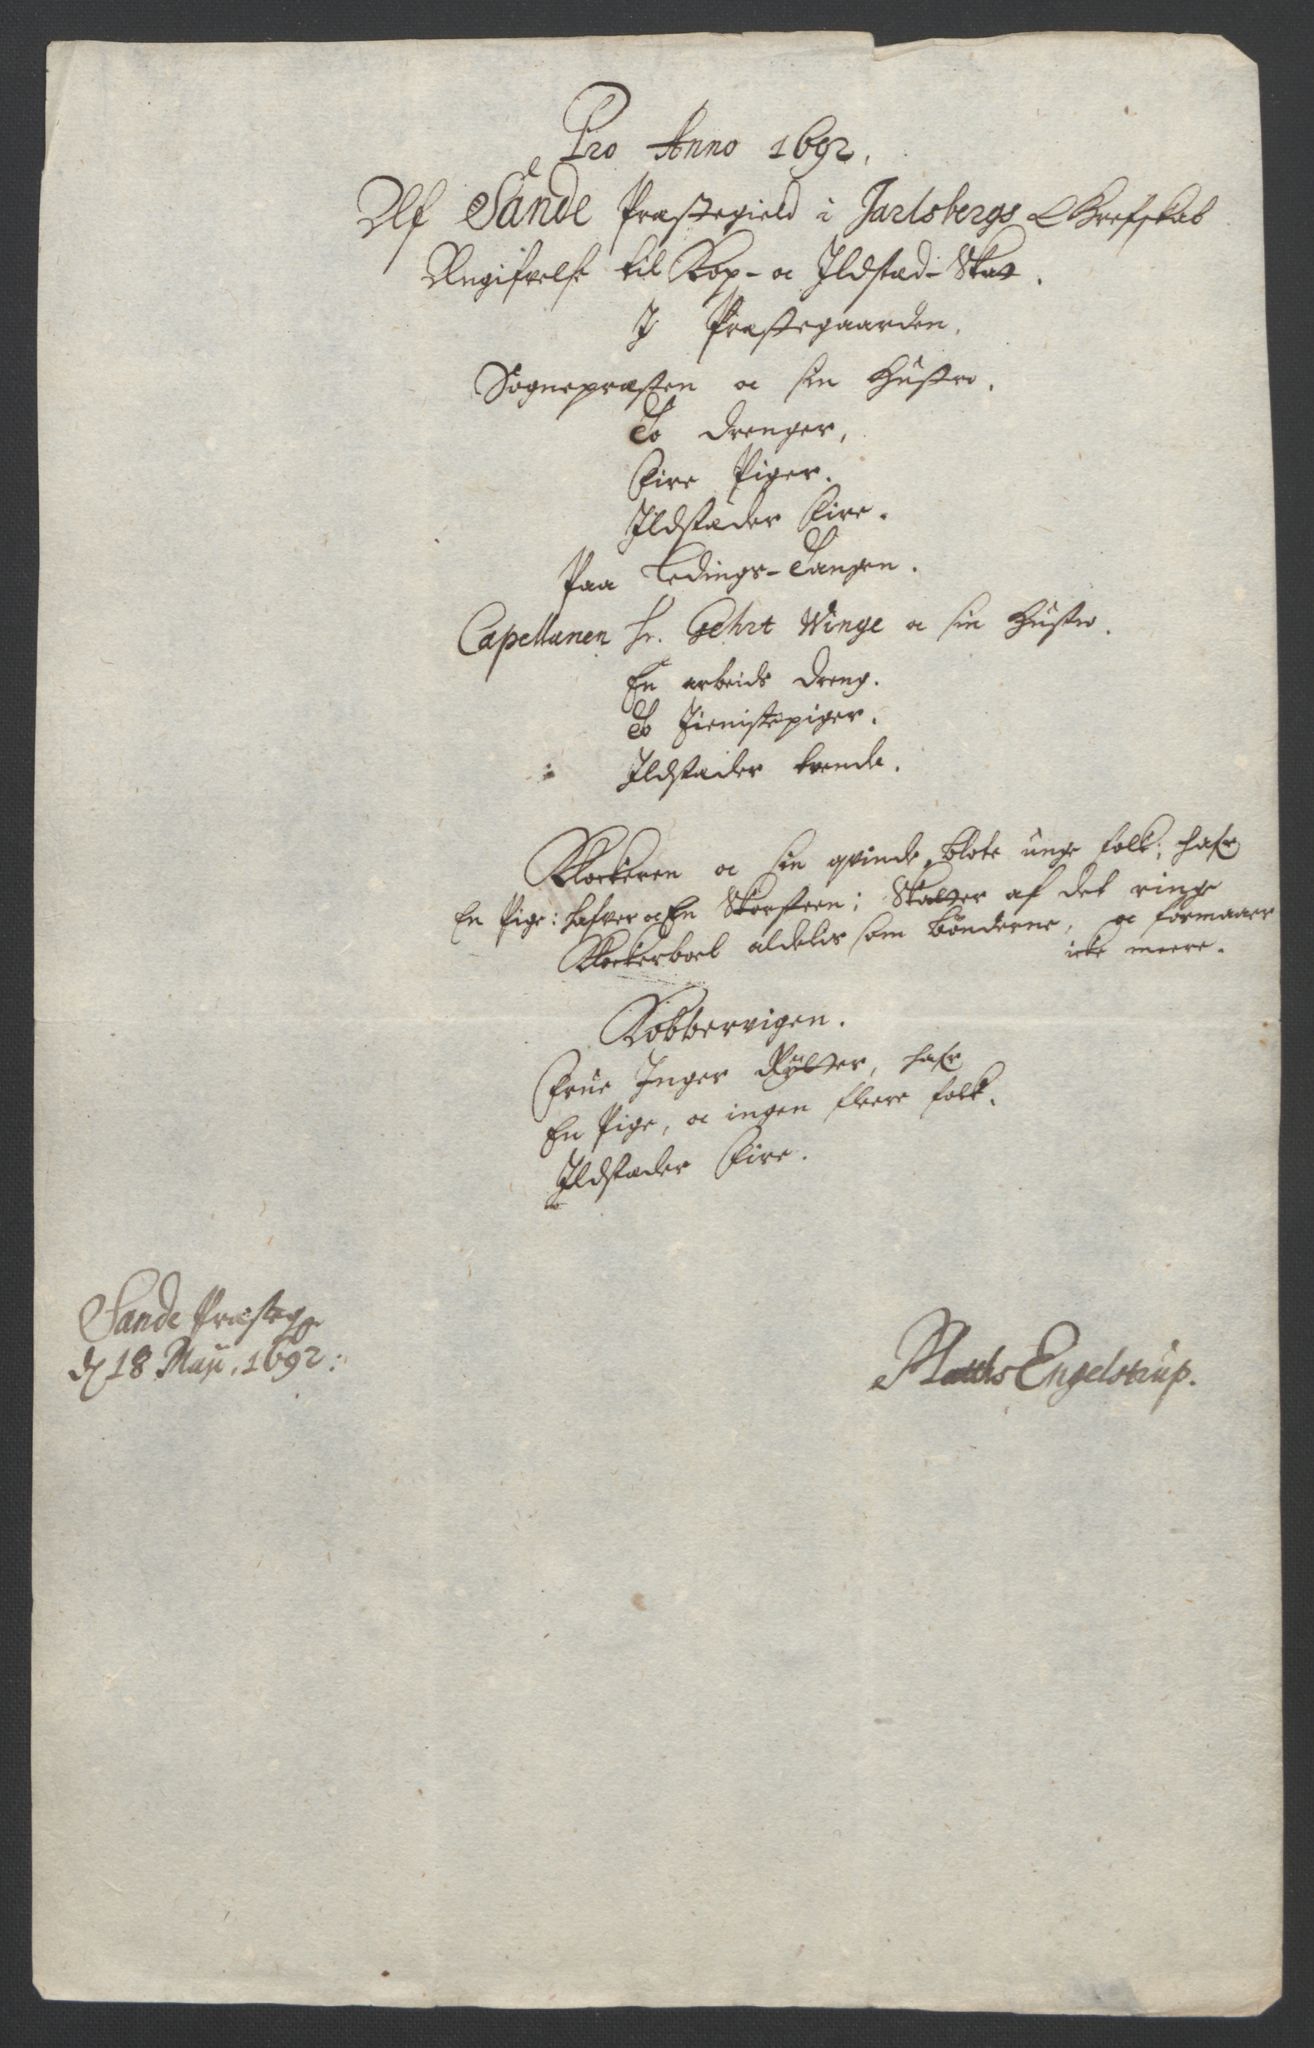 Pro Anno 1692,
Af Sande Præstegield i Jarlsbergs Grefskab
Angifvelse til Kop- oc Ildsted-Skat.
I Præstegaarden.
Sognepræsten oc sin Hustro.
To drenger,
Fire Piger.
Ildstæder Fire.
Paa Tangen.
Capellanen hr. Gehrt Winge oc sin Hustro.
En arbeids dreng.
To tienistepiger.
Ildstæder tvende.
Klockeren oc sin qvinde, blote unge folk; hafr
En Pige: hafver oc En Skorsteen; Skatter af det ringe
Klockerboel aldelis som bønderne, oc formaaer
icke meere.
Kobbervigen.
Frue Inger, hafr
En Pige, oc ingen fleere folk.
Ildstæder Fire.
Sande Præsteg
d 18 Maji. 1692:
Matths Engelstrup.